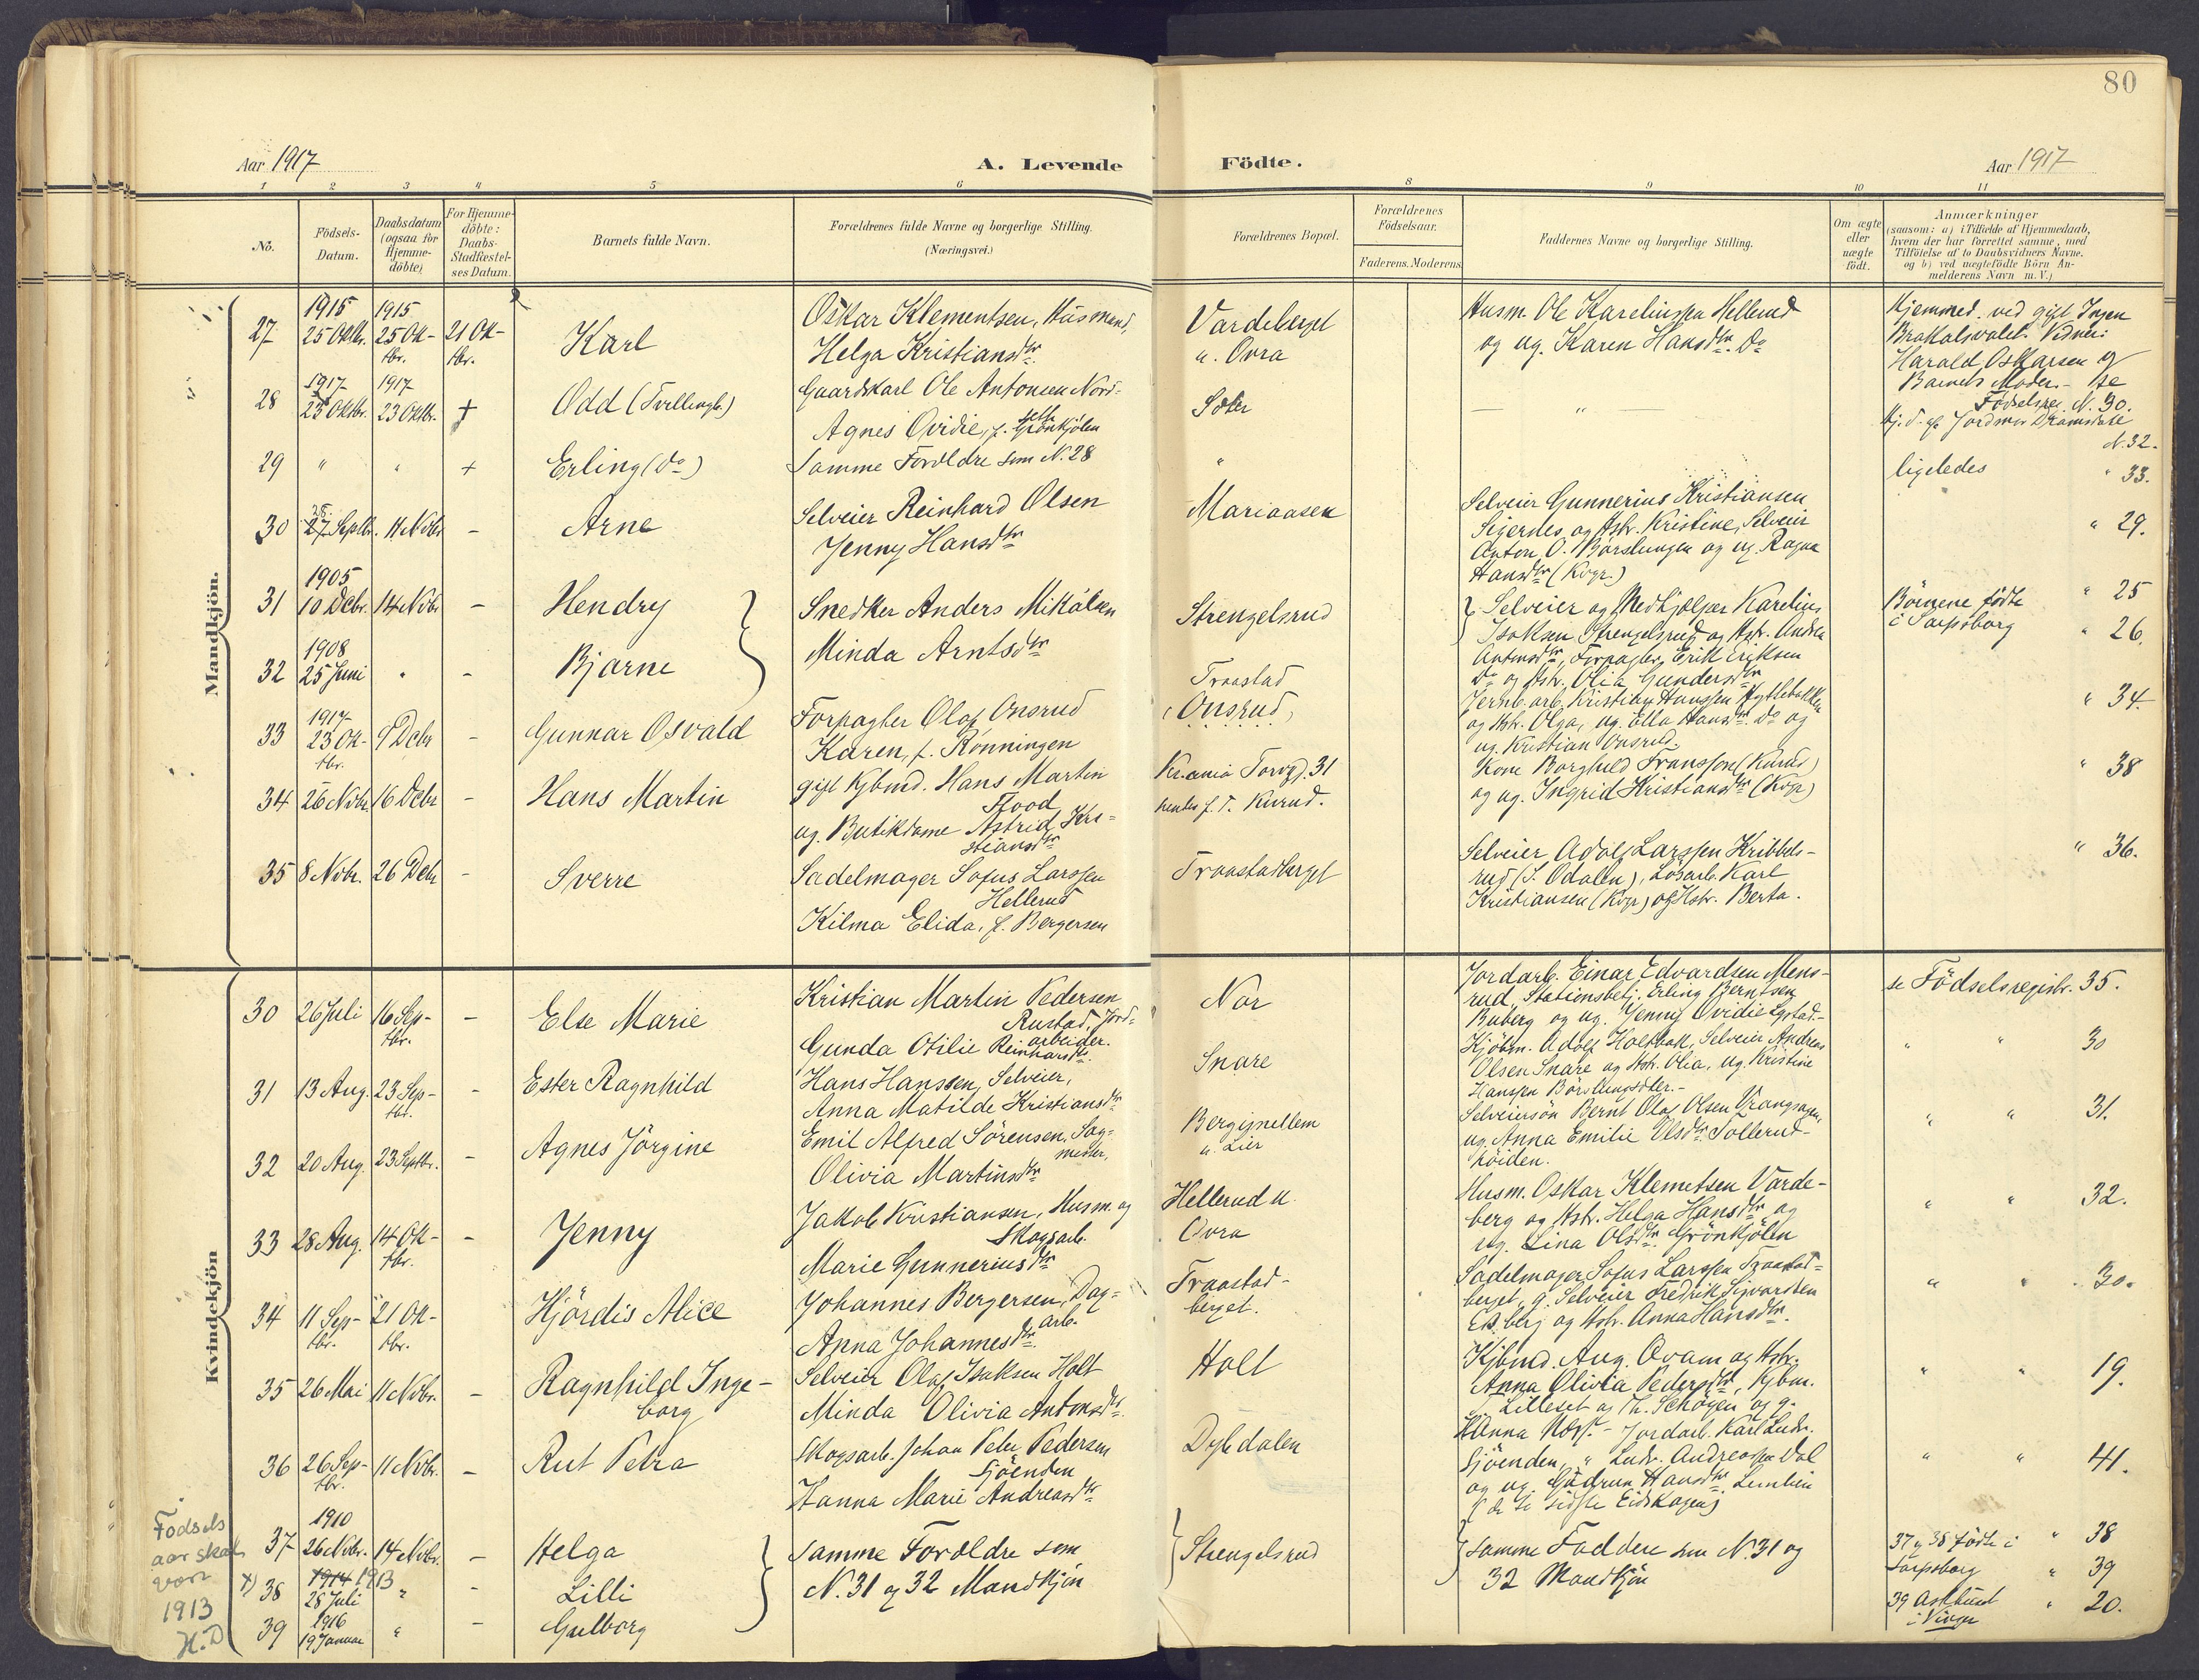 80
Aar 1917
A. Levende Födte.
Aar 1917
1 2 3 4 5 6 8 9 10 11
No.
Födsels-Datum.
Daabsdatum (ogsaa for Hjemmedöbte)
For Hjemmedöbte: Daabs-Stadfæstelses Datum.
Barnets fulde Navn.
Forældrenes fulde Navne og borgerlige Stilling.
(Næringsvei.)
Forældrenes Bopæl.
Forældrenes Födselsaar.
Faderens. Moderens
Faddernes Navne og borgerlige Stilling.
Om ægte eller uægte födt.
Anmærkninger
(saasom: a) i Tilfælde af Hjemmedaab,
hvem der har forrettet samme, med
Tilföielse af to Daabsvidners Navne.
og b) ved uægtefödte Börn Anmelderens Navn m. V.)
Mandkjön.
27 1915 25 Oktbr. 1915 25 Oktbr. 21 Oktbr. Karl
Oskar Klementsen, Husmand,
Helga Kristiansdtr
Vardeberget
u. Ovra
Husm. Ole Karelinssen Hellerud
og ug. Karen Hansdtr. Do
Hjemmed. ved gift Ingen
Brakalsvalet. Vidner:
Harald Oskarsen og
Barnets Moder. - se
Födselsreg. N. 30.
28 1917 23 Oktbr. 1917 23 Oktbr. + Odd (Tvillingb.)
Gaardskarl Ole Antonsen Nordseth
Agnes Ovidie, f. Grönkjölen
Sæter
— " —
Hj. d. af Jordmor Dramsdase
N. 32.
29 " " + Erling (do)
Samme Foreldre som N. 28
"
ligeledes " 33.
30 28. 27 Septbr. 11 Novbr - Arne
Selveier Reinhard Olsen
Jenny Hansdtr
Mariaasen
Selveier Gunnerius Kristiansen
Sigernes og Hstr. Kristine, Selveier
Anton O. Börslungen og ug. Ragna
Hansdtr (Kvgr.)
" 29.
31 1905 10 Debr. 14 Novbr - Hendry
Snedker Anders Mikalsen
Strengelsrud
Selveier og Medhjælper Karelius
Isaksen Strengelsrud og Hstr. Andrea
Börnene födte " 25
i Sarpsborg " 26.
32 1908 25 Juni " - Bjarne
Minda Arntsdtr
Antonsdtr, Forpagter Erik Eriksen
Do og Hstr. Olia Gundersdtr
33 1917 23 Oktbr. 9 Debr - Gunnar Osvald
Forpagter Olaf Onsrud
Karen, f. Rönningen
Traastad
(Onsrud)
Jernb. arb. Kristian Hanssen Hyttebakken
og Hstr. Olga, ug. Ella Hansdtr. Do og
ug. Kristian Onsrud.
" 34.
34 26 Novbr. 16 Debr - Hans Martin
gift Kjbmd. Hans Martin
Flood
ug. Butikdame Astrid Kristiansdtr
Kr.ania Torvgd. 31
hentes f. T. Kurud.
Kone Borghild Franssen (Kurud)
og ug. Ingrid Kristiansdtr (Kvgr)
" 38
35 8 Novbr. 26 Debr - Sverre
Sadelmager Sofus Larssen
Hellerud
Kilma Elida, f. Bergersen
Traastadberget
Selveier Adolf Larssen Kribbelsrud
(S. Odalen), Lösarb. Karl
Kristiansen (Kvgr) og Hstr. Berta.
" 36.
Kvindekjön
30 26 Juli 16 Septbr. - Else Marie
Kristian Martin Pedersen
Rustad, Jordarbeider.
Gunda Otilie Reinhardsdtr
Nor
Jordarb. Einar Edvardsen Mensrud,
Stationsbetj. Erling Berntsen
Buberg og ug. Jenny Ovidie Lystad.-
se Födselsregistr. 35.
31 13 Aug. 23 Septbr. - Ester Ragnhild
Hans Hanssen, Selveier,
Anna Matilde Kristiansdtr
Snare
Kjöbm. Adolf Holtbak, Selveier Andreas
Olsen Snare og Hstr. Olia, ug. Kristine
Hanssen Börslungsæter.-
" " 30
32 20 Aug. 23 Septbr. - Agnes Jörgine
Emil Alfred Sörensen, Sagmester,
Olivia Martinsdtr
Bergignellem
u. Lier
Selveiersön Bernt Olaf Olsen Vrangsagen,
ug. Anna Emilie Olsdtr. Sollerudhöiden.
" " 31.
33 28 Aug. 14 Oktbr. - Jenny
Jakob Kristiansen, Husm. og
Skogsarb.
Marie Gunneriusdtr
Hellerud u.
Ovra
Husm. Oskar Klemetsen Vardeberg
og Hstr. Helga Hansdtr og
ug. Lina Olsdtr. Grönkjölen
" " 32.
34 11 Septbr. 21 Oktbr. Hjördis Alice
Johannes Bergersen, Dagarb.
Anna Johannesdtr.
Traastadberget.
Sadelmager Sofus Larssen Traastadberget,
g. Selveier Fredrik Sigvardsen
Ekberg og Hstr. Anna Hansdtr.
" " 30.
35 26 Mai 11 Novbr. - Ragnhild Ingeborg
Selveier Olaf Isaksen Holt
Minda Olivia Antonsdtr.
Holt
Kjbmd. Aug. Ovam og Hstr.
Anna Olivia Pedersdtr, Kjbm.
Lilleset og Th. Schöyen og g.
Hanna Næss. -
" " 19.
36 26 Septbr. 11 Novbr. - Rut Petra
Skogsarb. Johan Peter Pedersen
Sjöenden
Hanna Marie Andreasdtr
Dybdalen
Jordarb. Karl Ludv.
Sjöenden, " Ludv. Andreassen Dal
og ug. Gudrun Hansdtr. Lemhien
(de to sidste Eidskogen)
" " 41.
37 1910 26 Novbr. 14 Novbr. - Helga
Samme Foreldre som
N. 31 og 32 Mandkjön
Strengelsrud
samme Faddere som N. 31 og
32 Mandkjön
37 og 38 födte i " 38
Sarpsborg " 39
x) 38 1914 1913 28 Juli " - Lilli
39 1916 19 Januar " - Gulborg
39 " 20.
i Vinger
Fødsels
aar skal
være
1913
H.D